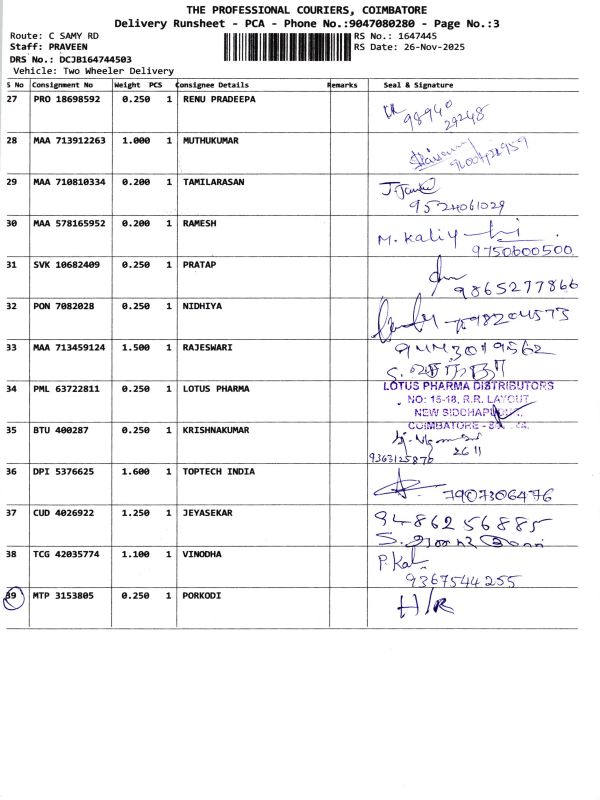 THE PROFESSIONAL COURIERS, COIMBATORE
Delivery Runsheet - PCA - Phone No.:9047080280 - Page No.:3
Route: C SAMY RD
RS No.: 1647445
Staff: PRAVEEN
RS Date: 26-Nov-2025
DRS No.: DCJB164744503
Vehicle: Two Wheeler Delivery
S No Consignment No Weight PCS Consignee Details Remarks Seal & Signature
27 PRO 18698592 0.250 1 RENU PRADEEPA
98940
29248
28 MAA 713912263 1.000 1 MUTHUKUMAR
29 MAA 710810334 0.200 1 TAMILARASAN
9524061029
30 MAA 578165952 0.200 1 RAMESH
M. Kaliy
9750600500
31 SVK 10682409 0.250 1 PRATAP
9865277866
32 PON 7082028 0.250 1 NIDHIYA
33 MAA 713459124 1.500 1 RAJESWARI
34 PML 63722811 0.250 1 LOTUS PHARMA
LOTUS PHARMA DISTRIBUTORS
NO: 15-18, R.R. LAYOUT
NEW SIDDHAPUDUR,
COIMBATORE -
35 BTU 400287 0.250 1 KRISHNAKUMAR
9363125876 26 11
36 DPI 5376625 1.600 1 TOPTECH INDIA
7907306476
37 CUD 4026922 1.250 1 JEYASEKAR
9486256885
38 TCG 42035774 1.100 1 VINODHA
P. Kal
9367544255
39 MTP 3153805 0.250 1 PORKODI
H/R